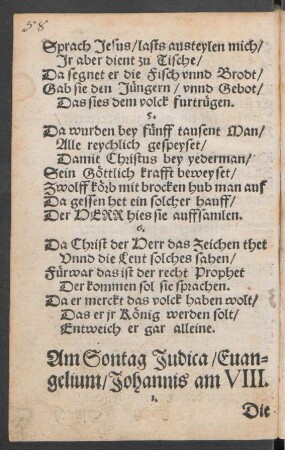 58
Sprach Jesus/lasts austeylen mich/
Jr aber dient zu Tische/
Da segnet er die Fisch vnnd Brodt/
Gab sie den Jüngern/vnnd Gebot/
Das sies dem volck furtrügen.
5.
Da wurden bey fünff tausent Man/
Alle reychlich gespeyset/
Damit Christus bey yederman/
Sein Göttlich krafft beweyset/
Zwolff körb mit brocken hub man auf
Da gessen het ein solcher hauff/
Der HERR hies sie auffsamlen.
6.
Da Christ der Herr das Zeichen thet
Vnnd die Leut solches sahen/
Fürwar das ist der recht Prophet
Der kommen sol sie sprachen.
Da er merckt das volck haben wolt/
Das er jr König werden solt/
Entweich er gar alleine.
Am Sontag Judica/Euan-
gelium/Johannis am VIII.
1.
Die